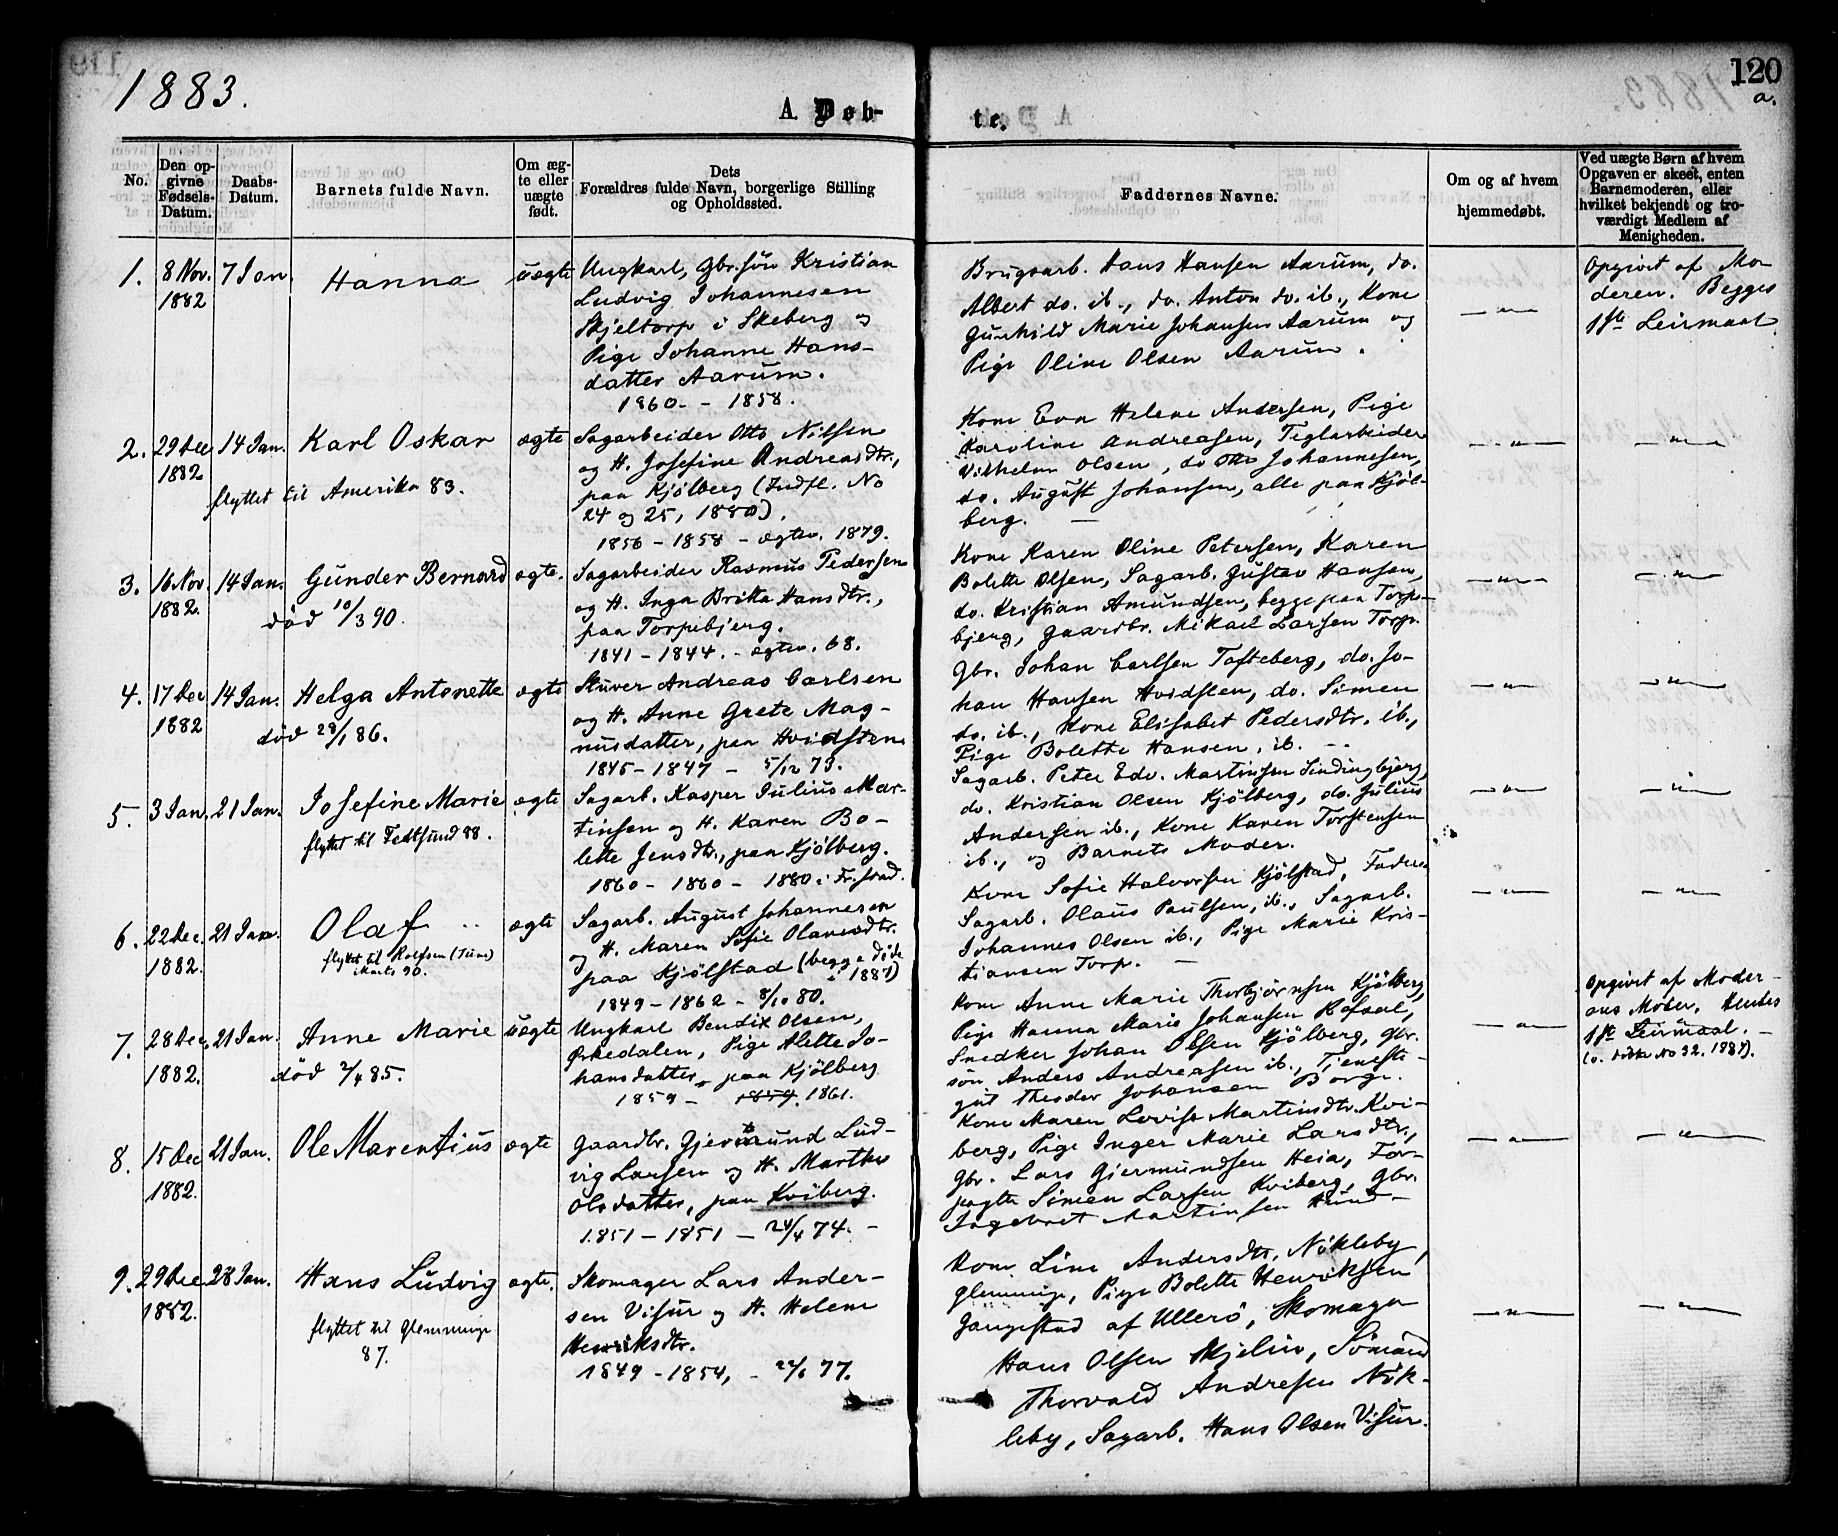 1883.
120
a.
A. Døb-
te.
No.
Den op-
givne
Fødsels-
Datum.
Daabs-
Datum.
Barnets fulde Navn.
Om æg-
te eller
uægte
født.
Dets
Forældres fulde Navn, borgerlige Stilling
og Opholdssted.
Faddernes Navne.
Om og af hvem
hjemmedøbt.
Ved uægte Børn af hvem
Opgaven er skeet, enten
Barnemoderen, eller
hvilket bekjendt og tro-
værdigt Medlem af
Menigheden.
1.
8 Nov.
1882
7 Jan.
Hanna
uægte
Ungkarl, Gbr.søn Kristian
Ludvig Johannesen
Skjeltorp i Skeberg og
Pige Johanne Hans-
datter Aarum.
1860. - 1858.
Brugsarb. Hans Hansen Aarum, do.
Albert do. ib., do. Anton do. ib., Kone
Gunhild Marie Johansen Aarum og
Pige Oline Olsen Aarum.
— " —
Opgivet af Mo-
deren. Begges
1ste Leirmaal.
2.
29 Dec
1882
14 Jan.
Karl Oskar
flyttet til Amerika 83.
ægte
Sagarbeider Otto Nilsen
og H. Josefine Andreasdtr.,
paa Kjölberg (Indfl. No
24 og 25, 1880).
1856 - 1858 - ægtev. 1879.
Kone Eva Helene Andersen, Pige
Karoline Andreasen, Teglarbeider
Vilhelm Olsen, do Otto Johannesen,
do. August Johansen, alle paa Kjöl-
berg. —
— " —
— " —
3.
16 Nov
1882.
14 Jan.
Gunder Bernard
död 10/3 90.
ægte.
Sagarbeider Rasmus Pedersen
og H. Inga Britta Hansdtr.,
paa Torpebjerg.
1841 - 1844. - ægtev. 68.
Kone Karen Oline Petersen, Karen
Bolette Olsen, Sagarb. Gustav Hansen,
do. Kristian Amundsen, begge paa Torpe-
bjerg, Gaardbr. Mikael Larsen Torp.
— " —
— " —
4.
17 Dec
1882
14 Jan.
Helga Antonette
död 28/1 86.
ægte
Stuver Andreas Carlsen
og H. Anne Grete Mag-
nusdatter, paa Hvidsten
1845 - 1847 - 5/12 73.
Gbr. Johan Carlsen Tofteberg, do. Jo-
han Hansen Hvidsten, do. Simen
do. ib., Kone Elisabet Pedersdtr. ib.,
Pige Bolette Hansen, ib. —
— " —
— " —
5.
3 Jan.
21 Jan.
Josefine Marie
flyttet til Fetsund 88.
ægte
Sagarb. Kasper Julius Mar-
tinsen og H. Karen Bo-
lette Jensdtr., paa Kjölberg.
1860 - 1860 - 1880 i Fr.stad.
Sagarb. Peter Edv. Martinsen Lindingbjerg,
do. Kristian Olsen Kjölberg, do. Julius
Andersen ib., Kone Karen Torstensen
ib., og Barnets Moder.
— " —
— " —
6.
22 Dec.
1882.
21 Jan.
Olaf
flyttet til Rolfsen (Tune)
Marts 90.
ægte
Sagarb. August Johannesen
og H. Maren Sofie Olavesdtr.
paa Kjölstad (begge døde
i 1887)
1849 - 1862 - 8/10 80.
Kone Sofie Halvorsen Kjölstad, Faderen
Sagarb. Olaus Paulsen, ib., Sagarb.
Johannes Olsen ib., Pige Marie Kris-
tiansen Torp. —
— " —
— " —
7.
28 Dec.
1882.
21 Jan.
Anne Marie
död 2/4 85.
uægte
Ungkarl Bendix Olsen,
Ørkedalen, Pige Alette Jo-
hansdatter, paa Kjölberg
1859 - 1859. 1861.
Kone Anne Marie Thorbjörnsen Kjölberg,
Pige Hanna Marie Johansen Rofsal,
Snedker Johan Olsen Kjölberg, Gbr.
sön Anders Andreasen ib., Tjeneste-
gut Theodor Johansen Borge.
— " —
Opgivet af Moder-
ens Moder. Hendes
1ste Leirmaal. —
(v. No 32, 1887).
8.
15 Dec
1882.
21 Jan.
Ole Marentius
ægte
Gaardbr. Gjermund Lud-
vig Larsen og H. Marthe
Olsdatter, paa Kviberg.
1851 - 1851 - 24/4 74. -
Kone Maren Lovise Martinsdtr. Kvi-
berg, Pige Inger Marie Larsdtr.,
Gbr. Lars Gjermundsen Heia, For-
pagter Simen Larsen Kviberg, Gbr.
Ingebret Martinsen Lund —
— " —
— " —
9.
29 Dec
1882.
28 Jan.
Hans Ludvig
flyttet til Glemminge
87.
ægte.
Skomager Lars Ander-
sen Visur og H. Helene
Henriksdtr.
1849 - 1854, - 22/6 77.
Kone Line Andersdtr. Nökleby,
Glemminge, Pige Bolette Henriksen
Gangestad af Ullerö, Skomager
Hans Olsen Skjelin, Sömand
Thorvald Andresen Nök-
leby, Sagarb. Hans Olsen Visur.
— " —
— " —